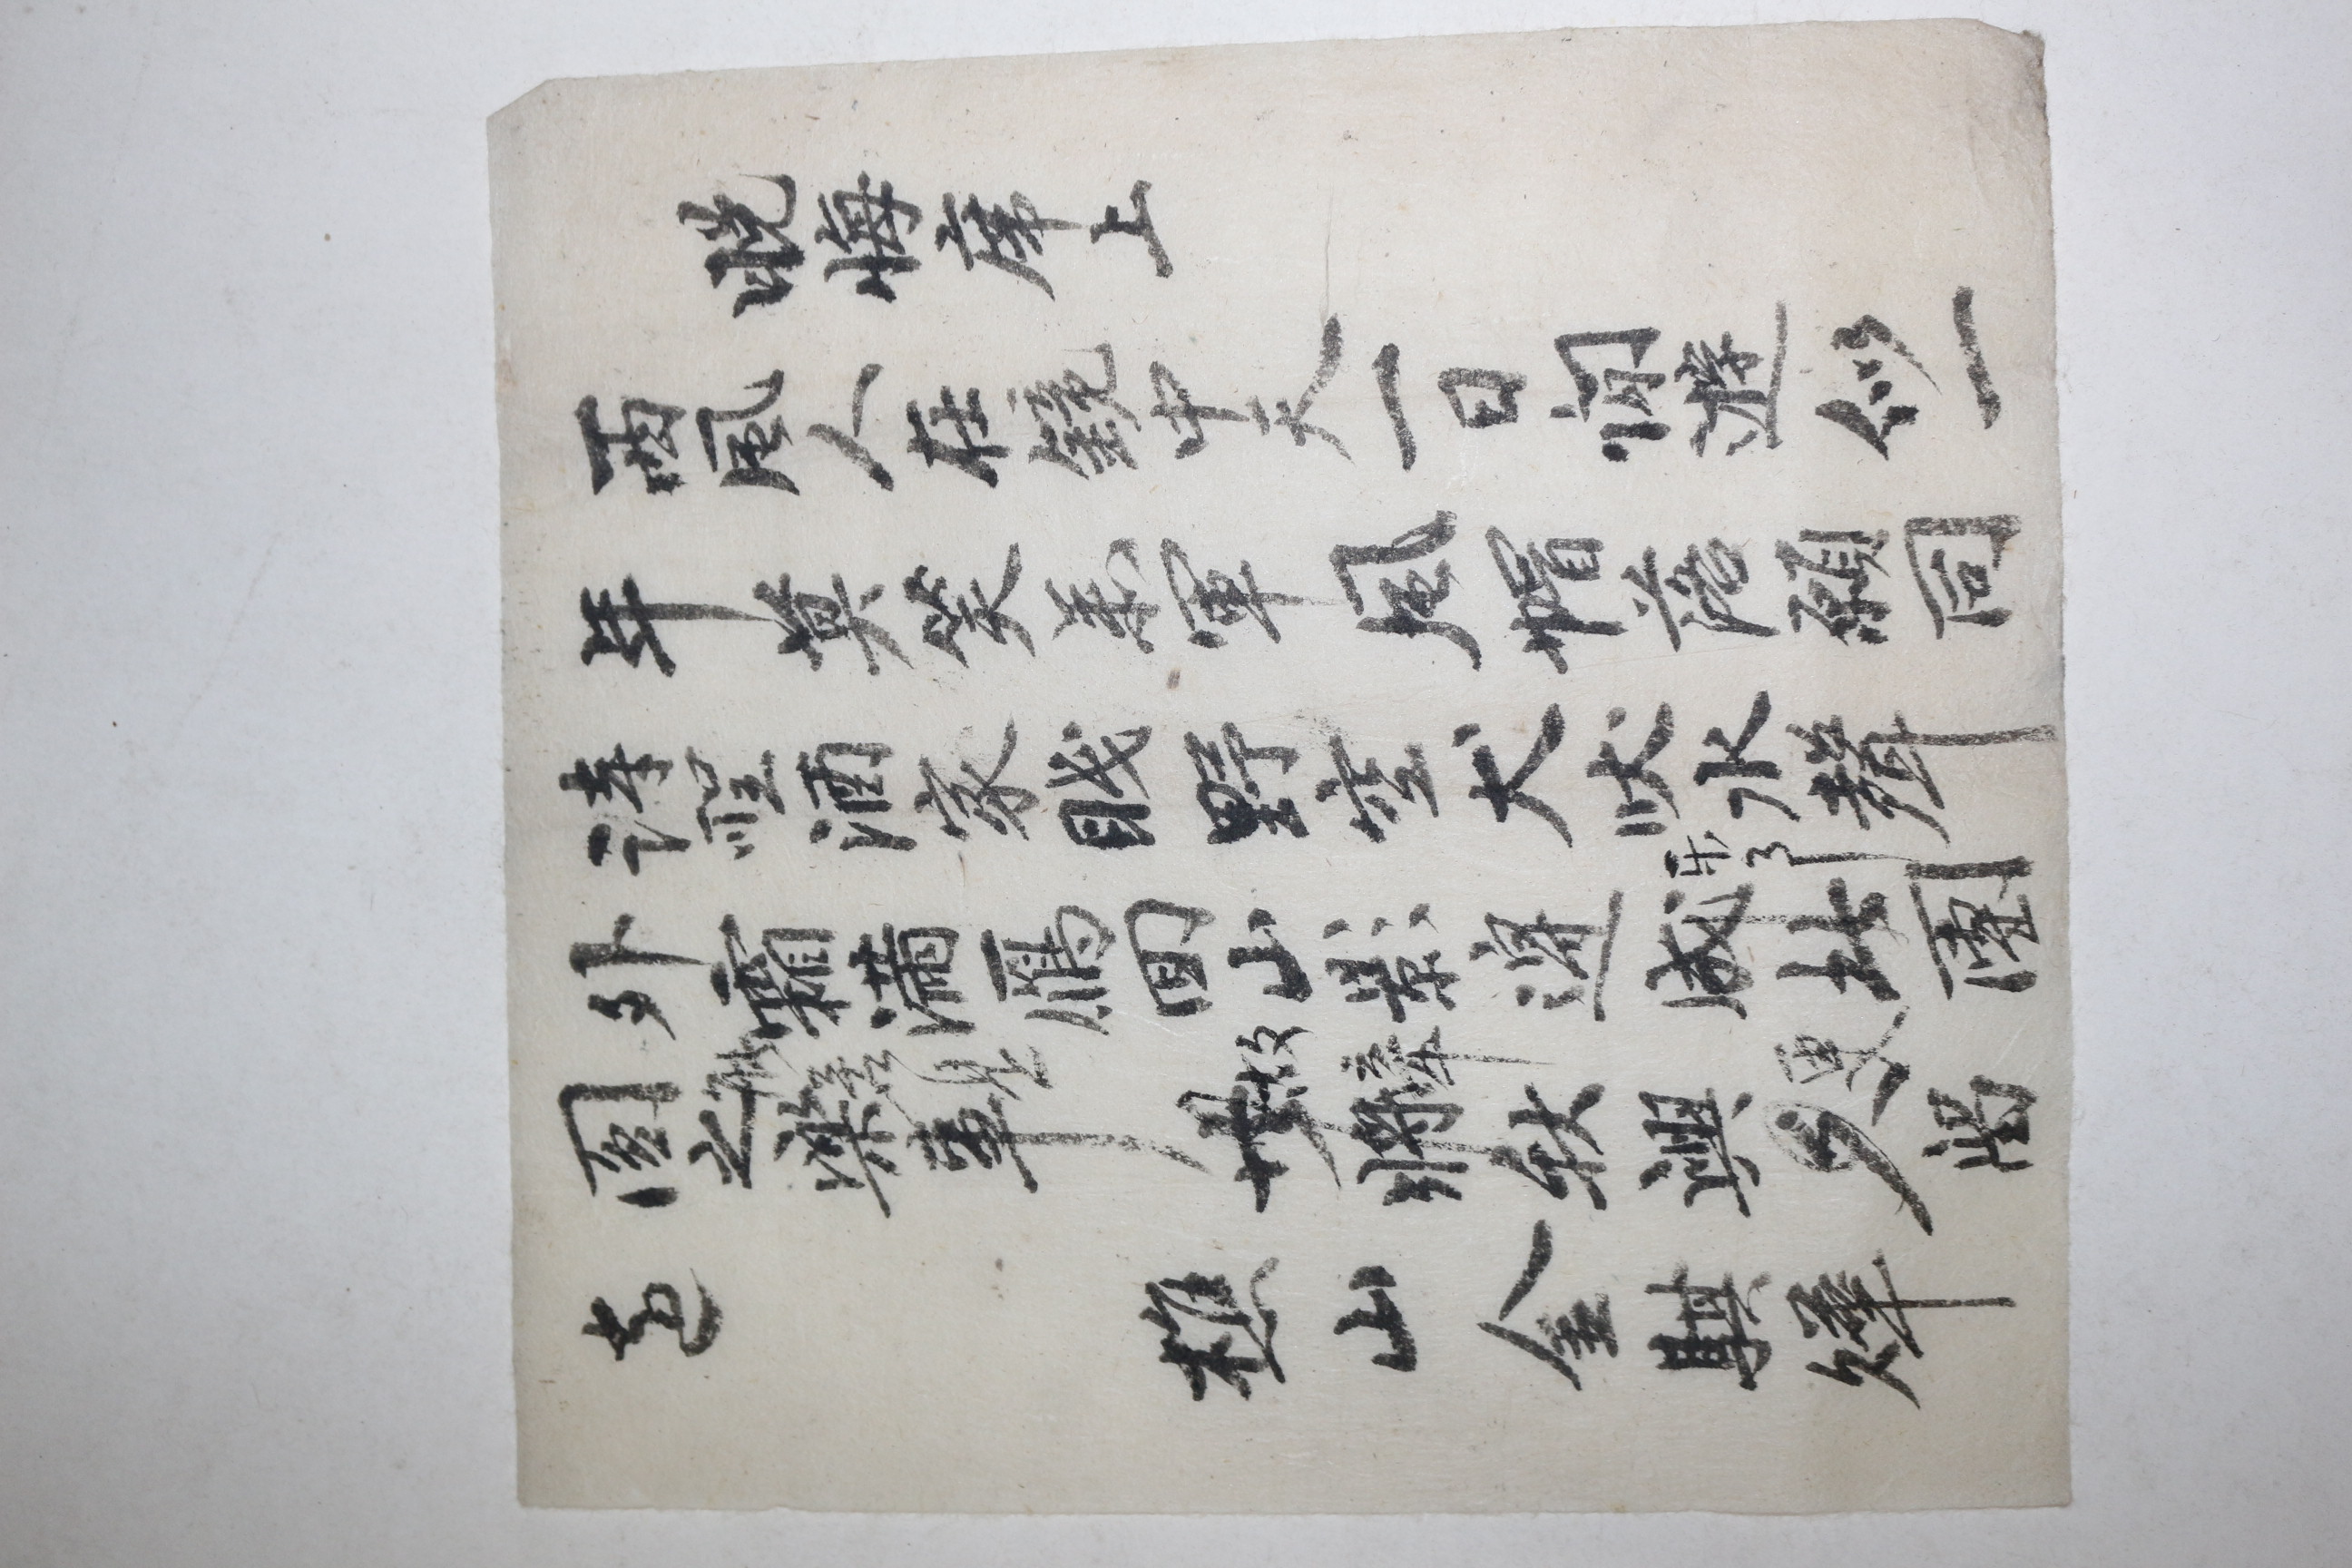 晩悔席上
西風人在鏡中天一日閒遊似一
年莫笑参軍風帽落願同
詩聖酒家眠野空犬吠水聲
外霜滿鴈回山影邊成此團
圓之樂事將秋興留
是
故
更
樵山金騏燁